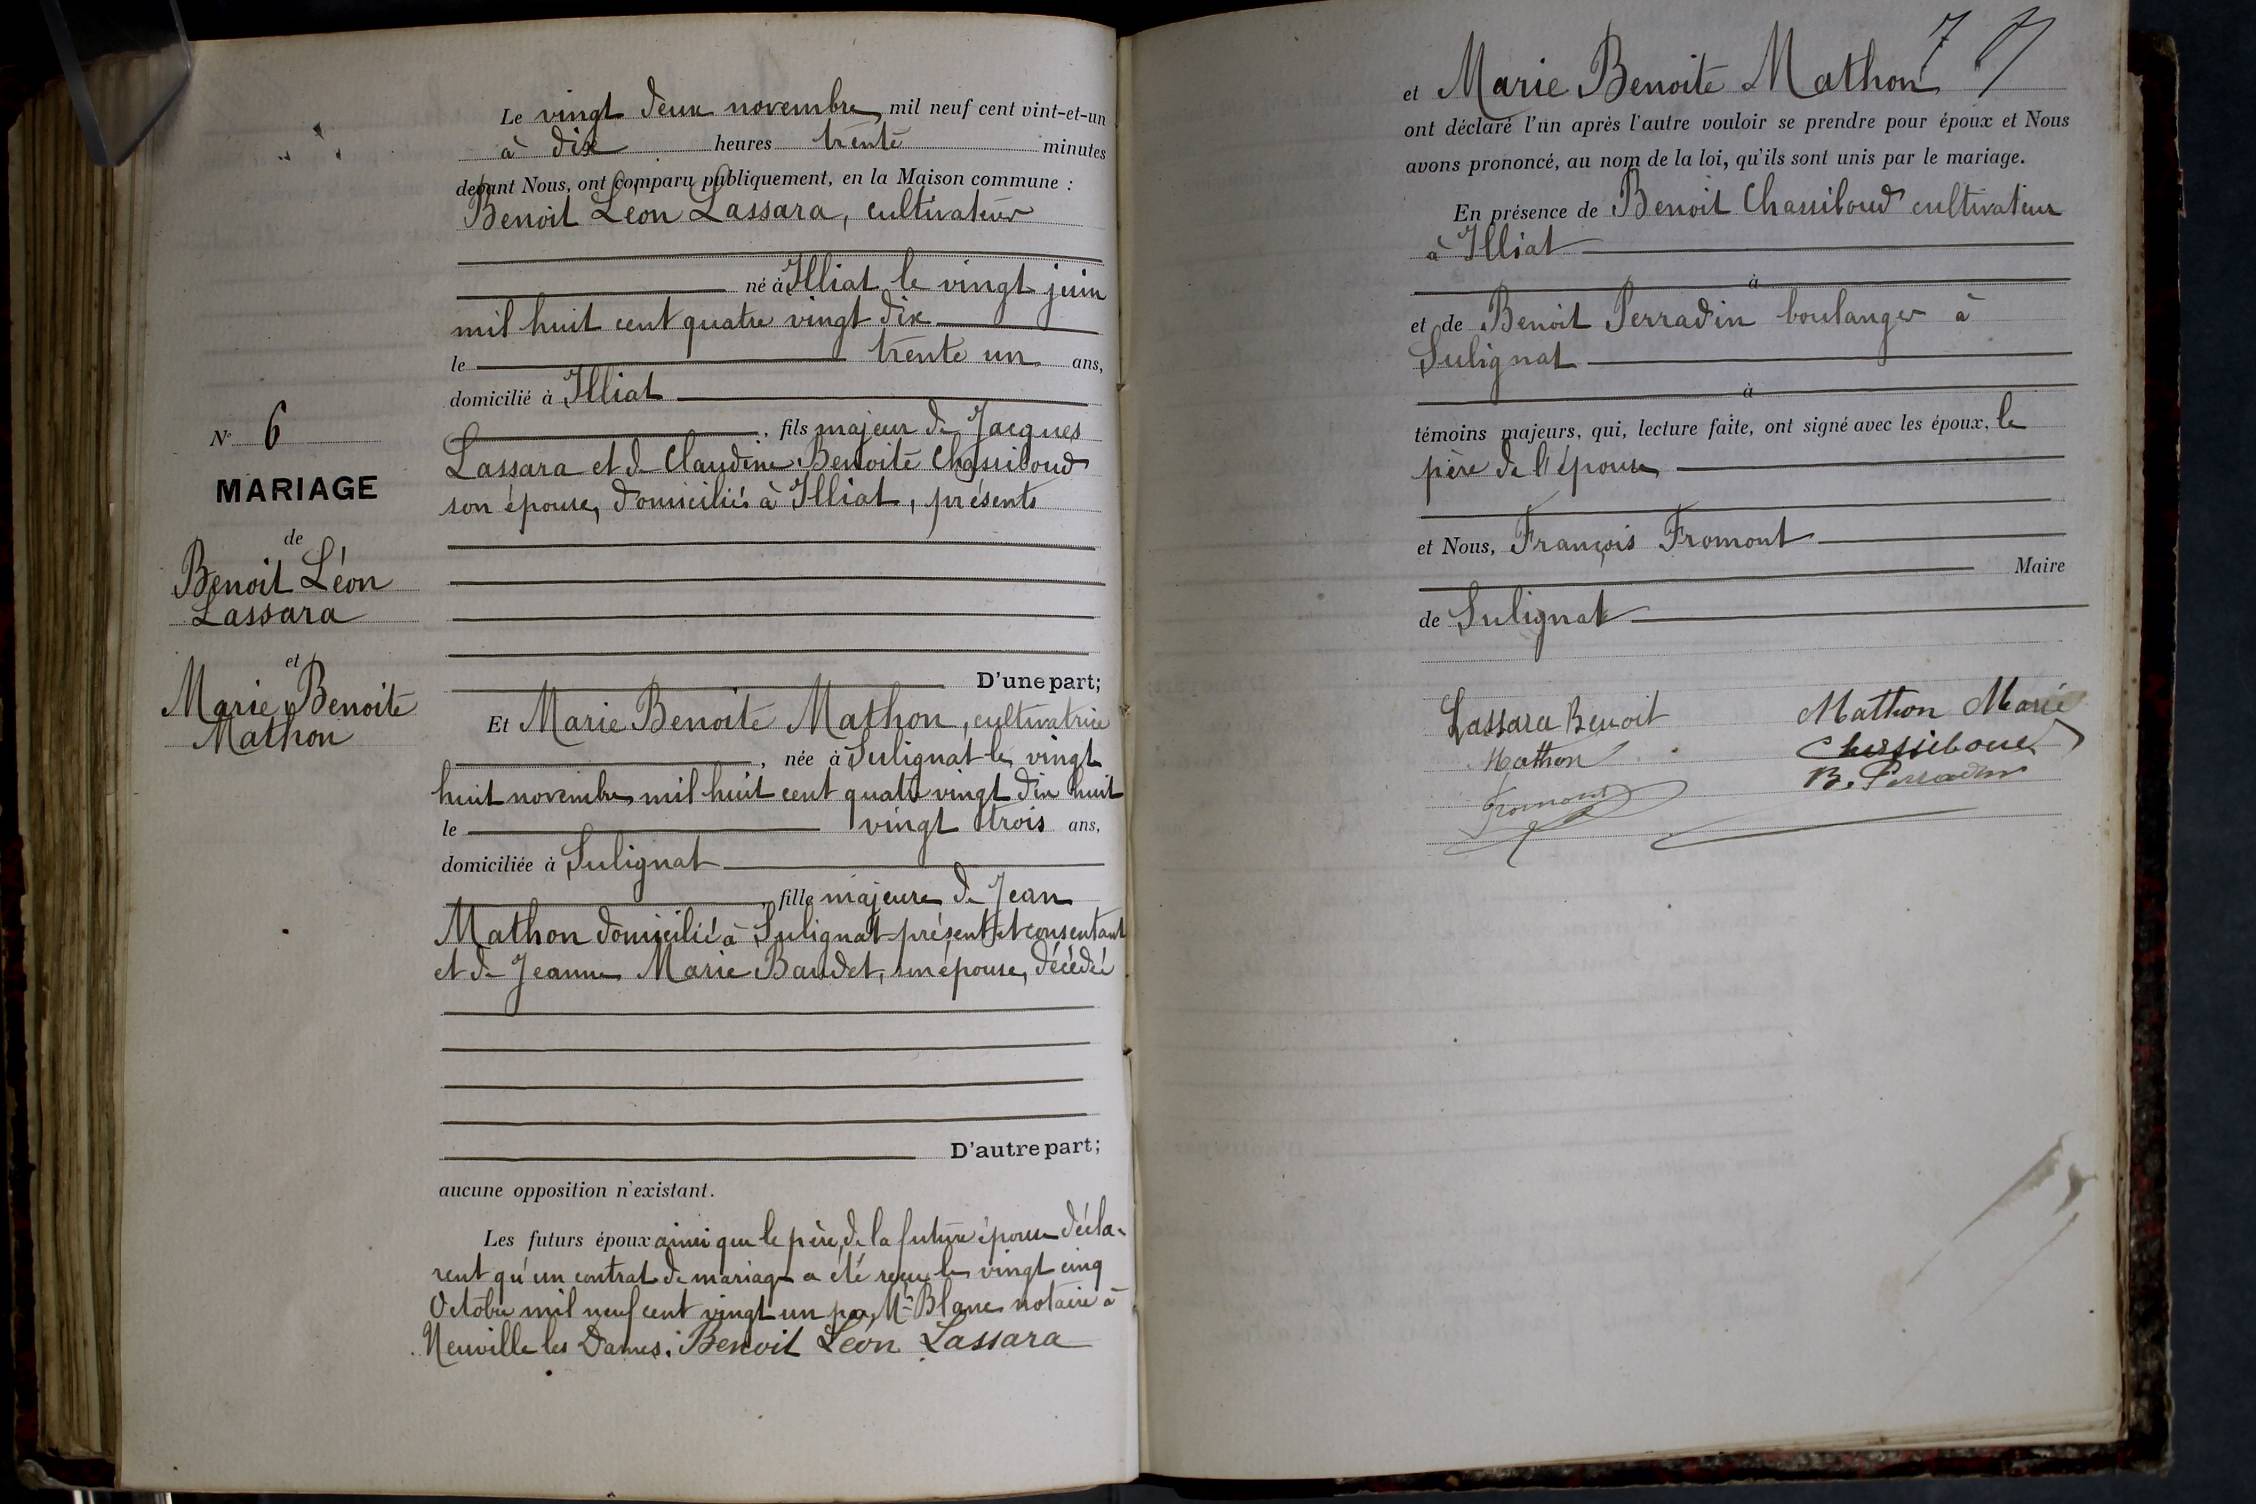 Le vingt deux novembre mil neuf cent vint-et-un
à dix heures trente minutes
devant Nous, ont comparu publiquement, en la Maison commune :
Benoit Léon Lassara, cultivateur
né à Illiat le vingt juin
mil huit cent quatre vingt dix
le trente un ans,
domicilié à Illiat
, fils majeur de Jacques
Lassara et de Claudine Benoite Chassiboud
son épouse, domiciliés à Illiat, présents
D'une part;
Et Marie Benoite Mathon, cultivatrice
, née à Sulignat le vingt
huit novembre mil huit cent quatre vingt dix huit
le vingt trois ans,
domiciliée à Sulignat
, fille majeure de Jean
Mathon domicilié à Sulignat présent et consentant
et de Jeanne Marie Baudet, son épouse, décédée
D'autre part;
aucune opposition n'existant.
Les futurs époux ainsi que le père de la future épouse décla-
rent qu'un contrat de mariage a été reçu le vingt cinq
Octobre mil neuf cent vingt un par Me Blanc notaire à
Neuville les Dames. Benoit Léon Lassara
N° 6
MARIAGE
de
Benoit Léon
Lassara
et
Marie Benoite
Mathon
7
et Marie Benoite Mathon
ont déclaré l'un après l'autre vouloir se prendre pour époux et Nous
avons prononcé, au nom de la loi, qu'ils sont unis par le mariage.
En présence de Benoit Chassiboud cultivateur
à Illiat
à
et de Benoit Perradin boulanger à
Sulignat
à
témoins majeurs, qui, lecture faite, ont signé avec les époux, le
père de l'épouse
et Nous, François Fromont
Maire
de Sulignat
Lassara Benoit Mathon Marie
Mathon Chassiboud
Fromont B. Perradin